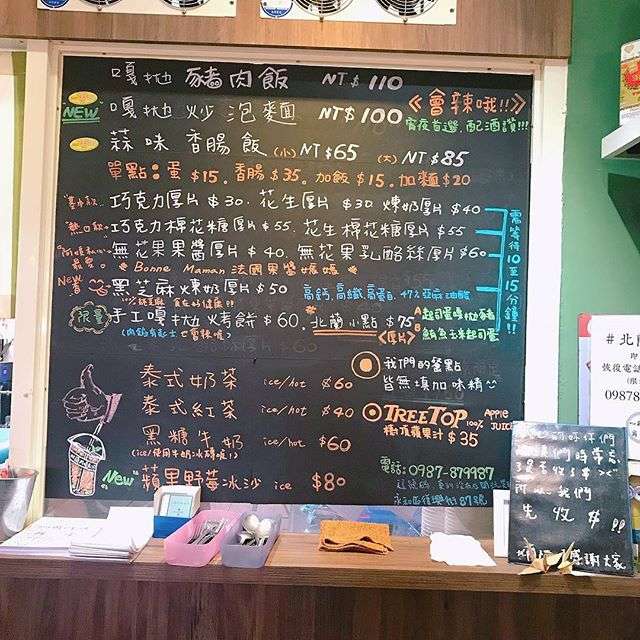 嘎抛 豬肉飯 NT$110
NEW 嘎抛 炒 泡麵 NT$100 《會辣哦!!》
宵夜首選 配酒讚!!!
蒜味 香腸飯 (小) NT$65 (大) NT$85
單點:蛋 $15. 香腸 $35. 加飯 $15. 加麵 $20
巧克力厚片 $30. 花生厚片 $30 煉奶厚片 $40
熱口款 巧克力棉花糖厚片 $55. 花生棉花糖厚片 $55
無花果果醬厚片 $40. 無花果乳酪絲厚片 $60
最愛 * Bonne Maman 法國果醬
NEW 黑芝麻煉奶厚片 $50 高鈣.高纖.高蛋白. 47%亞麻油酸
需等待10至15分鐘!!
限量 手工嘎抛烤餅 $60. *北蘭小點 $75 A 起司蛋嘎抛豬
《厚片》 B 鮪魚玉米起司蛋
我們的餐點
皆無添加味精^^
泰式奶茶 ice/hot $60
泰式紅茶 ice/hot $40
TREETOP 100% APPLE JUICE
樹頂蘋果汁 $35
黑糖牛奶 ice/hot $60
(ice/使用牛奶冰磚哦!)
New 蘋果野莓冰沙 ice $80
電話:0987-879987
永和區復興街81號
#北
恢復電話
0987
先收$
感謝大家